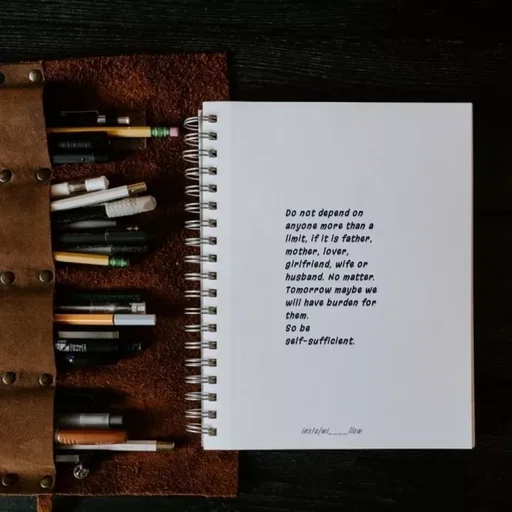 Do not depend on
anyone more than a
limit, if it is father,
mother, lover,
girlfriend, wife or
husband. No matter.
Tomorrow maybe we
will have burden for
them.
So be
self-sufficient.
insta/wi____flow